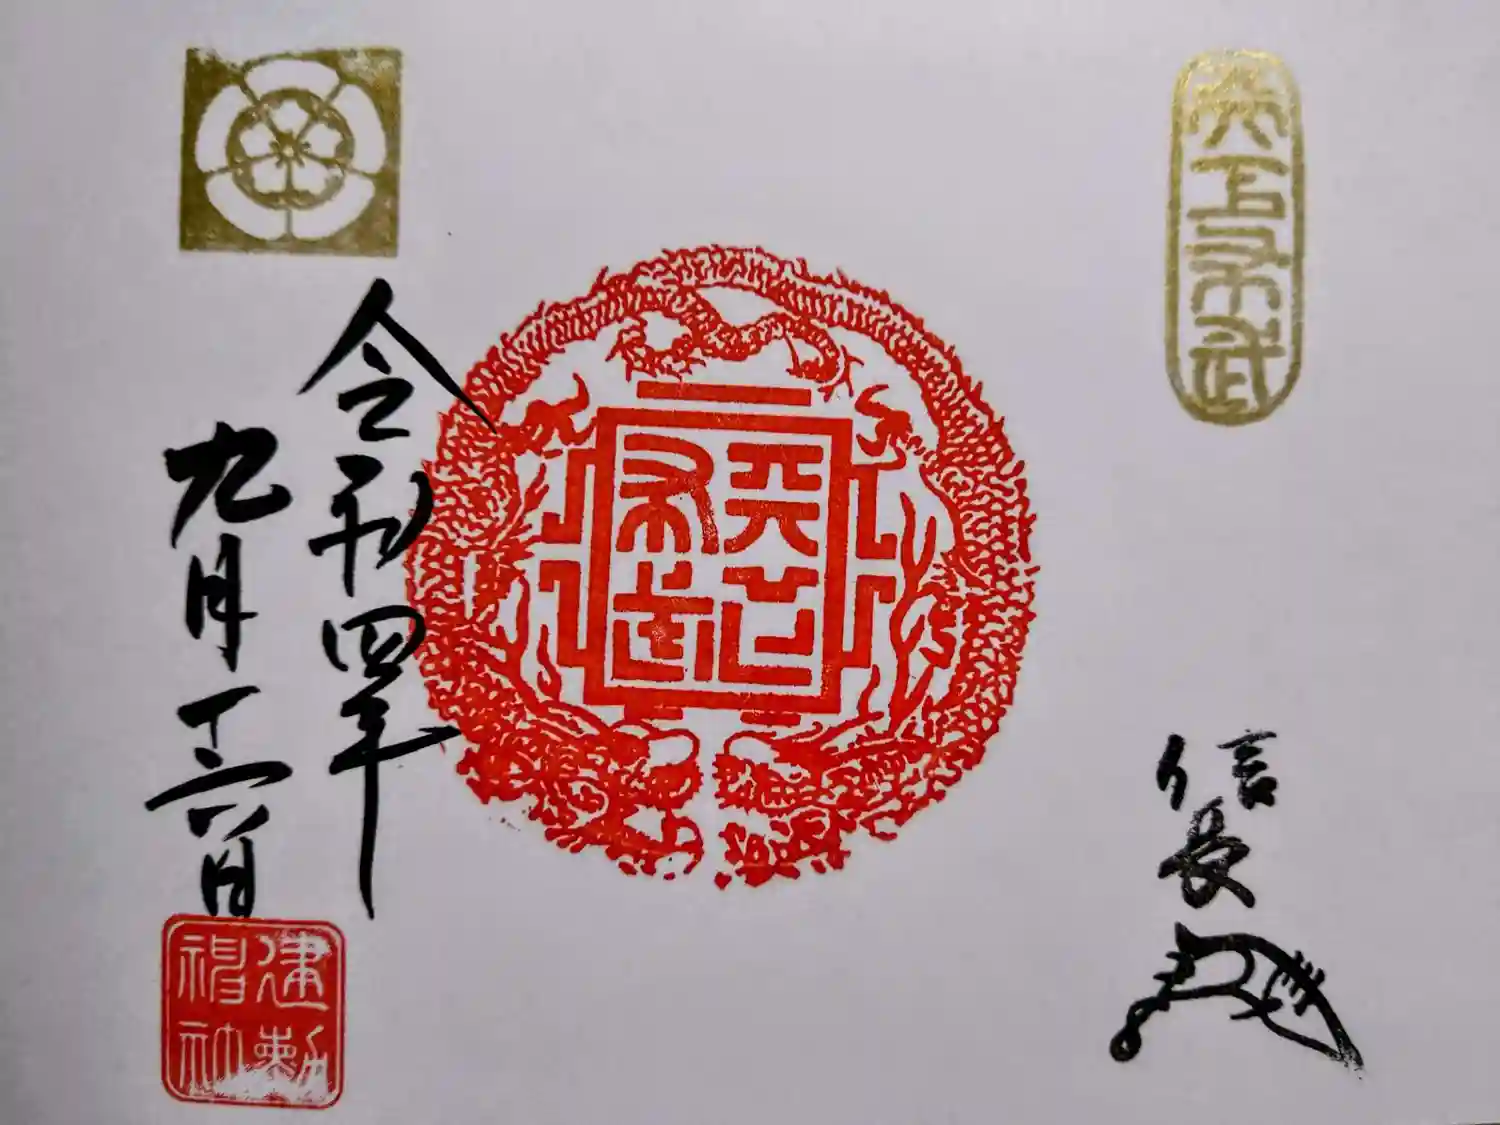 天下布武
信長
天下
布武
令和四年
九月十六日
建勲
神社